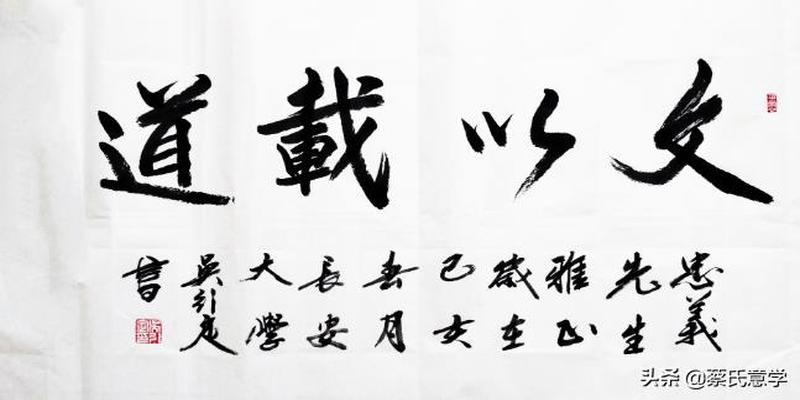 文以載道
忠義
先生
雅正
歲在
己亥
春月
長安
大學
吳引
書
头条 @蔡氏意学